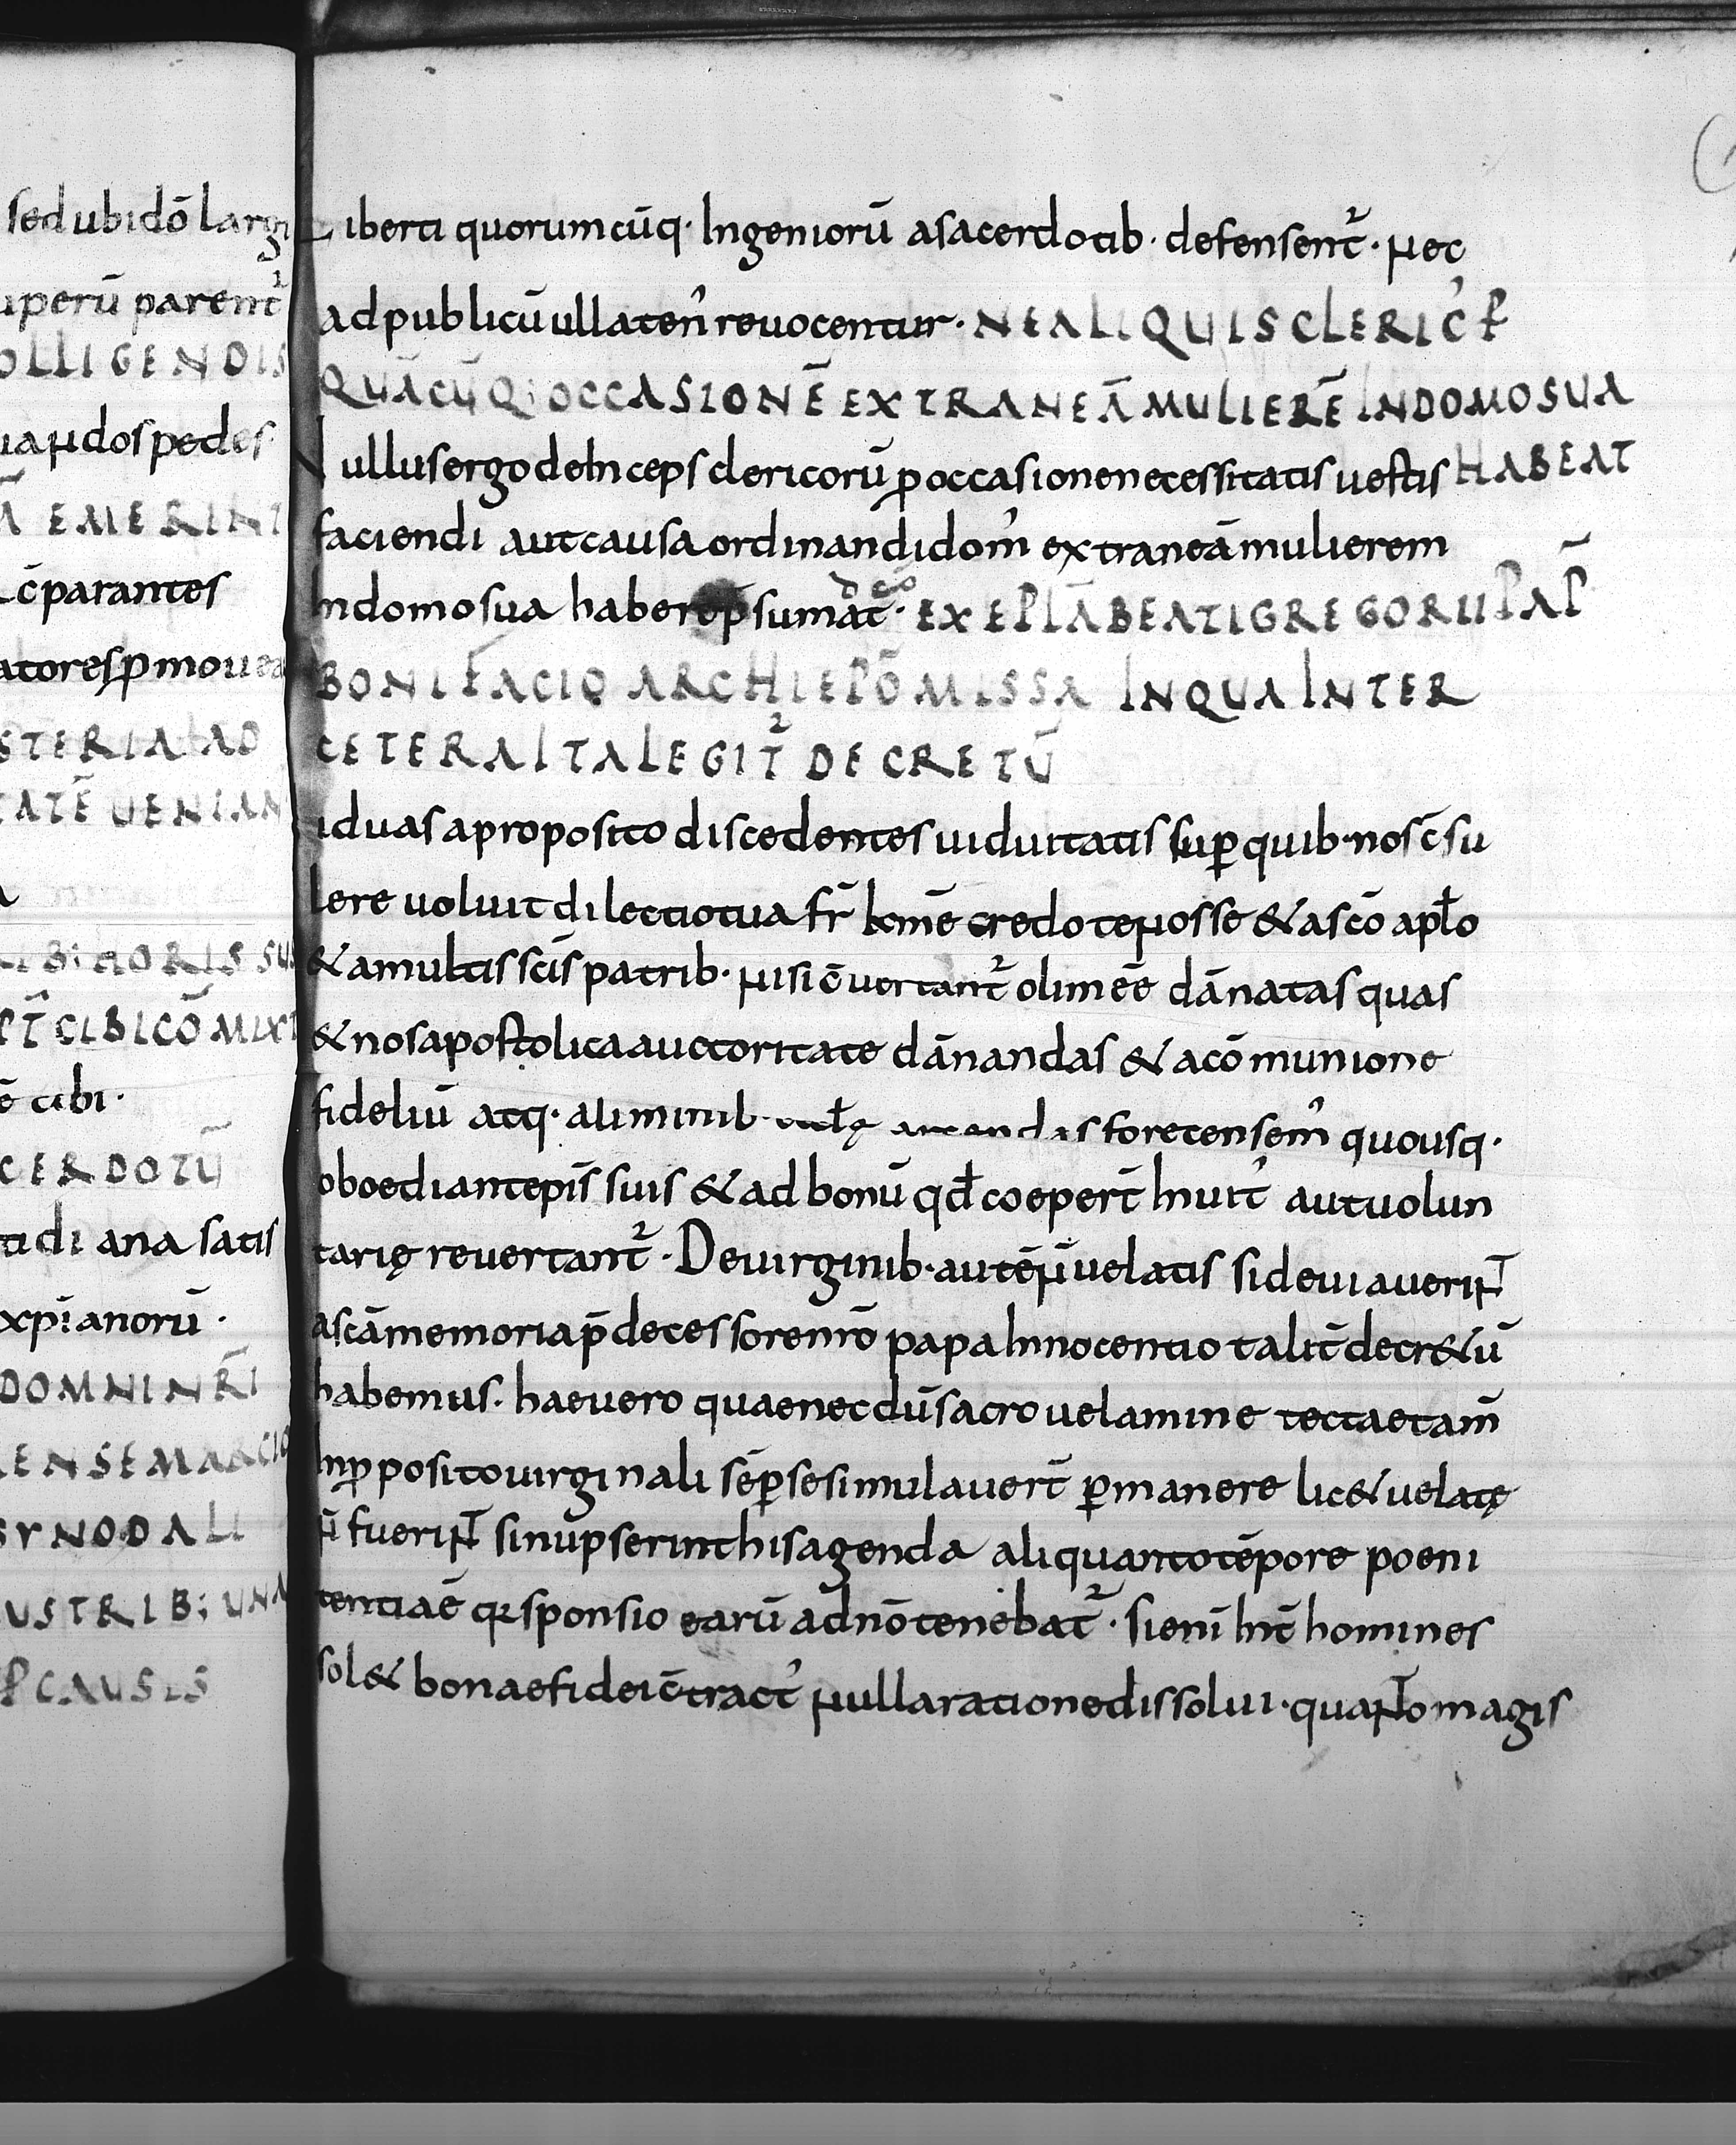 sed ubi dō largi
uperū parent᷑
OLLIGENDIS
uandos pedes
EMERINT
c̄parantes
atores ꝑmouea
STERIA AD
TATĒ UENIAN
RIB; HORIS SU
CIBI CŌMIXT
ē cibi·
CERDOTŪ
tidi ana satis
xp̄ianorū·
DOMNI NR̄I
ENSE MARCIO
SYNODALI
USTRIB; UNA
P CAUSIS
Liberti quorumcūq· Ingeniorū a sacerdotib· defensent᷑· nec
ad publicū ullaten' reuocentur· NE ALIQUIS CLERIC' P
QUĀCŪQ; OCCASIONĒ EXTRANEĀ MULIERĒ IN DOMO SUA
Nullus ergo deInceps clericorū ꝑ occasione necessitatis uestis HABEAT
faciendi aut causa ordinandi dom' extraneā mulierem
In domo sua habere p̄sumat· EX EPLĀ BEATI GREGORII PAP̄
BONIFACIO ARCHIEPŌ MISSA IN QUA INTER
CETERA ITA LEGIT᷑ DECRETŪ
iduas a proposito discedentes uiduitatis suꝑ quib· nos c̄su
lere uoluit dilectio tua fr̄ kmē credo te nosse & a scō apƚo
& a multis scīs patrib· nisi c̄uertant᷑ olim eē dānatas quas
& nos apostolica auctoritate dānandas & a cōmunione
fideliū atq· a liminib· arcandas fore censem' quousq·
oboediant epīs suis & ad bonū qđ coeper̄t Inuit' aut uolun
tarię reuertant᷑· De uirginib· autē n̄ uelatis si deuiauerint
a scā memoria p̄decessore nr̄o papa Innocentio talit̄ decr&ū
habemus· hae uero quae necdū sacro uelamine tectae tam̄
In ꝓposito uirginali sēꝑ se simulauer̄t ꝑmanere lic& uelatę
n̄ fuerint si nupserint his agenda aliquanto tēpore poeni
tentia ē qr sponsio earū ad nō tenebat᷑· si eni Int̄ homines
sol& bonae fidei c̄tract' nulla ratione dissolui· quanto magis